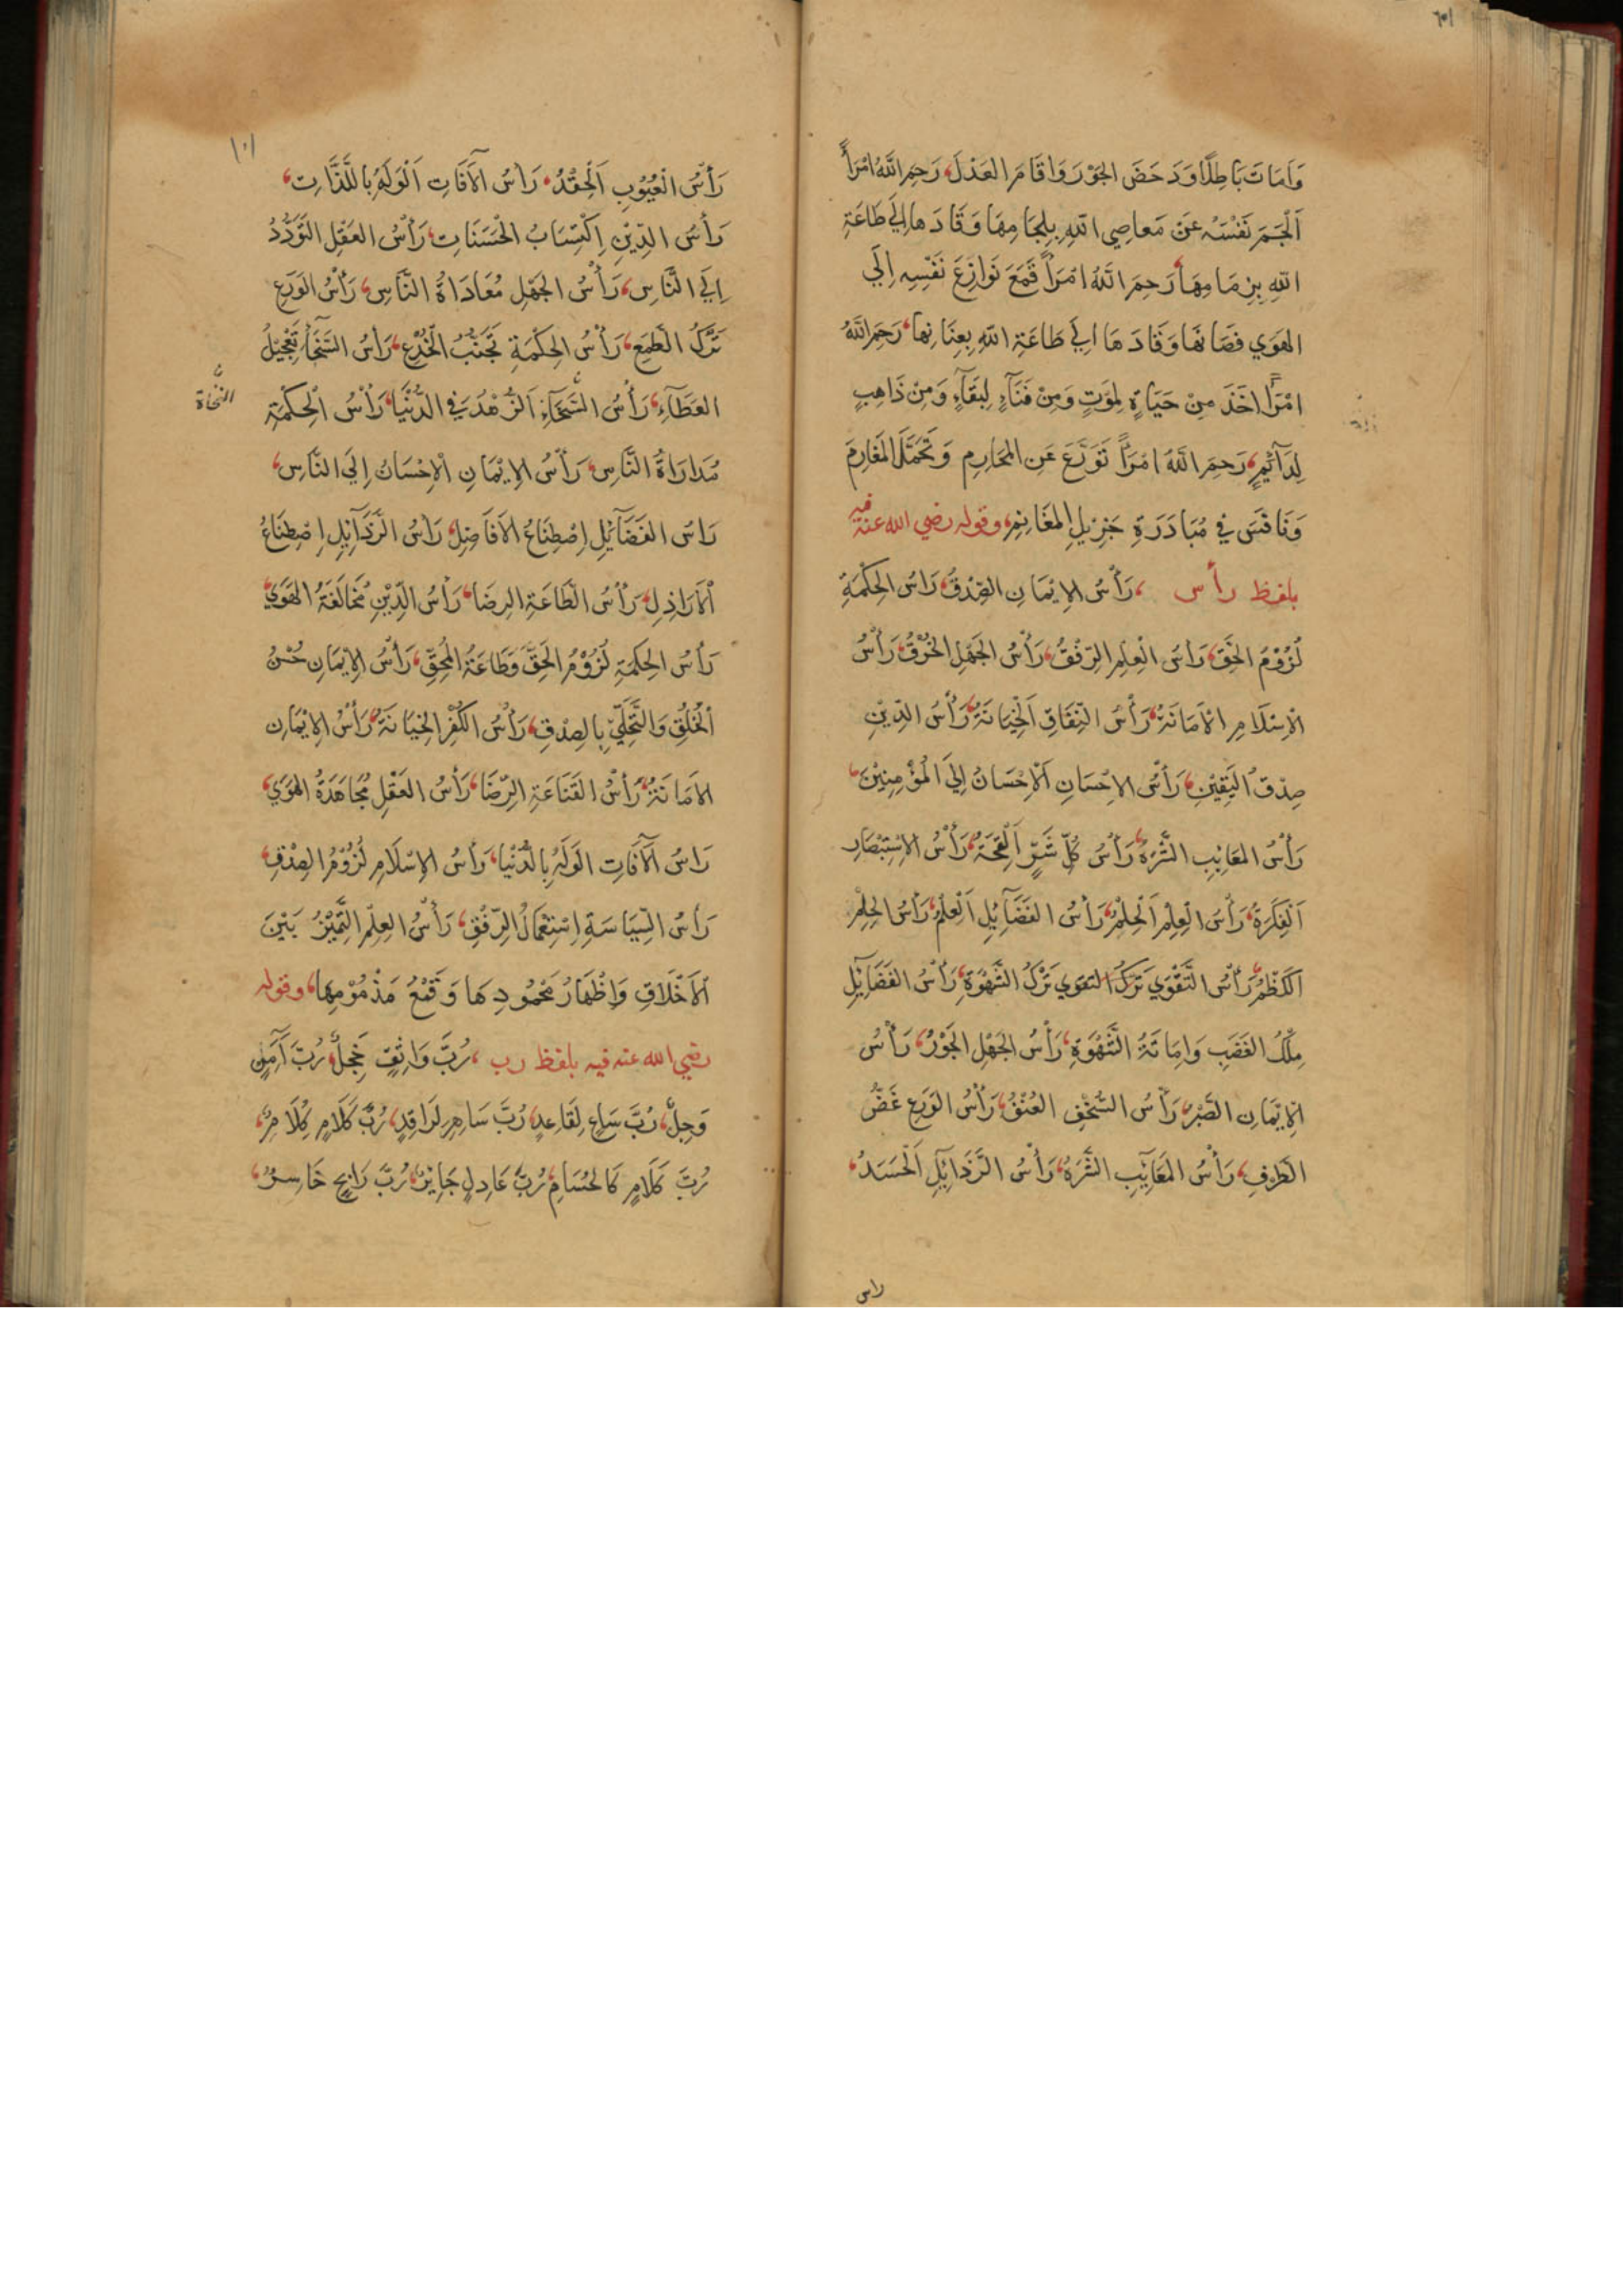 وَاَمَاتَ بَاطِلًا وَدَحَضَ الجَوْرَ وَاَقَامَ العَدْلَ، رَحِمَ اللَّهُ امْرَأً
اَلْجَمَ نَفْسَهُ عَنْ مَعَاصِي اللّهِ بِلِجَامِهَا وَقَادَها اِلَي طَاعَةِ
اللّهِ بِزِمَامِهَا، رَحِمَ اللَّهُ امْرَأً قَمَعَ نَوَازِعَ نَفْسِهِ اِلَي
الهَوَي فصَانَهَا وَقَادَهَا اِلَي طَاعَةِ اللّهِ بِعِنَانِها، رَحِمَ اللَّهُ
امْرَأً اَخَذَ مِنْ حَيَاةٍ لِمَوْتٍ وَمِنْ فَنَآءٍ لِبَقَآءٍ وَمِنْ ذَاهِبٍ
لِدَآئِمٍ، رَحِمَ اللَّهُ امْرَأً تَوَرَّعَ عَنِ المَحَارِمِ وَتَحَمَّلَ المَغَارِمَ
وَنَافَسَ فِي مُبَادَرَةِ جَزِيْلِ المَغَانِمِ، وقوله رضي الله عنه فيه
بلفظ رأس ، رَأْسُ الاِيْمَانِ الصِّدْقُ، رَاْسُ الحِكْمَةِ
لُزُوْمُ الحَقِّ، رَاْسُ الْعِلْمِ الرِّفْقُ، رَأْسُ الجَهْلِ الخُرْقُ، رَأْسُ
الْاِسْلَامِ الْاَمَانَةُ، رَأْسُ النِّفَاقِ اَلْخِيَانَةُ، رَأْسُ الدِّيْنِ
صِدْقُ الْيَقِيْنِ، رَأْسُ الاِحْسَانِ اَلْاِحْسَانُ اِلَيَ الْمُؤْمِنِيْنَ،
رَأْسُ المَعَايِبِ الشَّرَهُ، رَأْسُ كُلِّ شَرٍّ اَلْقِحَةُ، رَأْسُ الاِسْتِبْصَارِ
اَلْفِكْرَةُ، رَأْسُ الْعِلْمِ اَلْحِلْمُ، رَأْسُ الفَضَآئِلِ اَلْعِلْمُ، رَاْسُ الحِلْمِ
اَلْكَظْمُ، رَأْسُ التَّقْوَي تَرْكُ التقوي تَرْكُ الشَّهْوَةِ، رَأْسُ الفَضَائِلِ
مِلْكُ الغَضَبِ وَاِمَاتَةُ الشَّهْوَةِ، رَأْسُ الجَهْلِ الجَوْرُ، رَأْسُ
الْاِيْمَانِ الصَّبْرُ، رَأْسُ السُّخْفِ العُنْفُ، رَأْسُ الوَرَعِ غَضُّ
الطَّرْفِ، رَأْسُ المَعَآيِبِ الشَّرَهُ، رَأْسُ الرَّذَآئِلِ اَلْحَسَدُ،
راس
رَأْسُ الْعُيُوْبِ اَلْحِقْدُ، رَاْسُ الآفَاتِ اَلْوَلَهُ بِاللَّذَّاتِ،
رَأْسُ الدِّيْنِ اِكْتِسَابُ الْحَسَنَاتِ، رَأْسُ العَقْلِ التَّوَدُّدُ
اِلَي النَّاسِ، رَأْسُ الجَهْلِ مُعَادَاةُ النَّاسِ، رَأْسُ الوَرَعِ
تَرْكُ الطَّمَعِ، رَأْسُ الحِكْمَةِ تَجَنُّبُ الْخُدَعِ، رَاْسُ السَّخَآءِ تَعْجِيْلُ
العَطَآءِ، رَأْسُ السَّخَآءِ اَلزُّهْدُ فِي الدُّنْيَا، رَأْسُ الْحِكْمَةِ
مُدَارَاةُ النَّاسِ، رَأْسُ الاِيْمَانِ الْاِحْسَانُ اِلَيَ النَّاسِ،
رَاْسُ الفَضَآئِلِ اِصْطِنَاعُ الاَفَاضِلِ، رَاْسُ الرَّذَآئِلِ اِصْطِنَاعُ
الْاَرَاذِلِ، رَأْسُ الطَّاعَةِ الرِضَا، رَأْسُ الدِّيْنِ مُخَالَفَةُ الهَوَيَ
رَأْسُ الحِكْمَةِ لُزُوْمُ الحَقِّ وَطَاعَةُ الْمُحِقِّ، رَأْسُ الاِيْمَانِ حُسْنُ
الْخُلُقِ وَالتَّحَلِّيْ بِالصِدْقِ، رَأْسُ الكُفْرِ الخِيَانَةُ، رَأْسُ الاِيْمَانِ
الاَمَانَةُ، رَأْسُ القَنَاعَةِ الرِّضَا، رَأْسُ العَقْلِ مُجَاهَدَةُ الهَوَي،
رَاْسُ اَلآفَاتِ الوَلَهُ بِالدُّنْيَا، رَأْسُ الاِسْلَامِ لُزُوْمُ الصِدْقِ،
رَأْسُ السِّيَاسَةِ اِسْتِعْمَالُ الرِّفْقِ، رَأْسُ العِلْمِ التَّمْيِيْزُ بَيْنَ
الْاَخْلَاقِ وَاِظْهَارُ مَحْمُودِهَا وَقَمْعُ مَذْمُوْمِهَا، وقوله
رضي الله عنه فيه بلفظ رب ، رُبَّ وَاثِقٍ خَجِلٌ، رُبَّ آمِنٍ
وَجِلٌ، رُبَّ سَاعٍ لِقَاعِدٍ، رُبَّ سَاهِرٍ لِرَاقِدٍ، رُبَّ كَلَامٍ كِلَامٌ،
رُبَّ كَلَامٍ كَالحُسَامِ، رُبَّ عَادِلٍ جَايِرٌ، رُبَّ رَابِحٍ خَاسِرٌ،